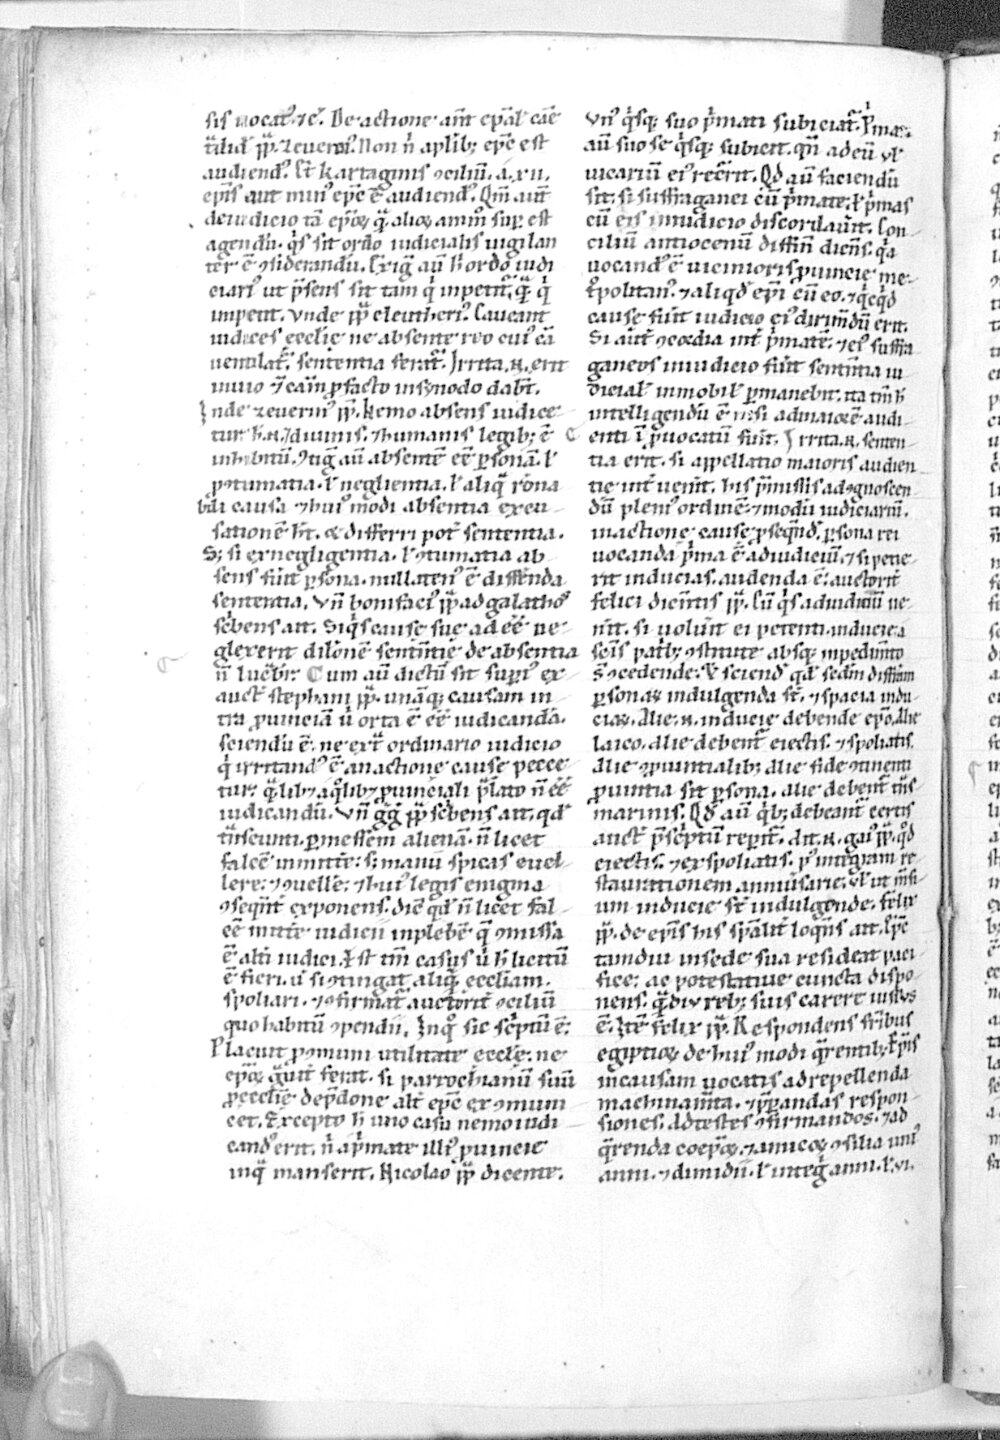 sis uocat᷒ ⁊c᷒. De actione aut̄ ep̄al' cāe
audiend᷒. Ut kartaginis ꝯciliū. a. xii.
ep̄is aut min᷒ ep̄c ē audiend᷒. Qm̄ aut̄
de iudicio tā ep̄oꝝ q̄ alioꝝ
agendū. q̇s sit ordo iudicialis uigilan
ter ē ꝯsiderandū. Exigit au̅ h̄ ordo iudi
ciari᷒ ut p̄sens sit tam q̇ inpetit᷑. qͣm q̇
impetit. Vnde pp̄ eleutheri᷒. Caueant
iudices ecclīe ne absente reo cui᷒ cā
uentilat᷑. sententia ferat᷑. Irrita .n. erit
immo ⁊ cām ꝓ facto in synodo dabt̄.
Inde zeuerin᷒ pp̄. Nemo absens iudice
tur h̄ .n. ⁊ diuinis. ⁊ humanis legib; ē
inhibitū. ꝯtigit au̅ absentē eē ꝑsonā. ł
ꝓ ꝯtumatia. ł neglientia. ł aliq̄ rōna
bili causa ⁊ hui᷒ modi absentia excu
sationē h̄t. & differri pot̄ sententia.
S; si ex negligentia. ł ꝯtumatia ab
sens fūit ꝑsona. nullaten᷒ ē differenda
sententia. Vn̄ bonifaci᷒ pp̄ ad galathos
sc̄bens ait. Siq̇s cause sue adēe ne
glexerit dilōnē sententie de absentia
n̄ lucbit᷑. Cum au̅ dictū sit superi᷒ ex
auct̄ stephani pp̄. unāq; causam in
tra ꝓuinciā ū orta ē eē iudicandā.
sciendū ē. ne extͣ ordinario iudicio
q̇ irritand᷒ ē an actione cause pecce
tur. q̄lib; a q̇lib; ꝓuinciali p̄lato n̄ eē
iudicandū. Vn̄ gͣgͣ pp̄ sc̄bens ait. qd̄
tͣnseunti. ꝑ messem alienā. n̄ licet
falcē inmitte᷑: s; manū spicas euel
lere: ⁊ ꝯuelle᷑: ⁊ hui᷒ legis enigma
ꝯseqn̄t exponens. dic̄ qd̄ n̄ licet fal
cē mitte᷑ iudicii in plebē q̄ ꝯmissa
ē alt̄i iudici. Est tm̄ casus ū h̄ licitū
ē fieri. ū si ꝯtingat aliq̄ eccliam
spoliari. ⁊ ꝯfirmat᷑ auctorit̄ ꝯciliū
quo habitū ꝯpendii. Inq̊ sic sc̄ptū ē:
Placuit ꝓ ꝯmuni utilitate eccle᷑: ne
ep̄oꝝ ferat. si parrochianū suū
excepto h̄ uno casu nemo iudi
cand᷒ erit. n̄ a p̄mate illi᷒ ꝓuincie
inq̄ manserit. Nicolao pp̄ dicente.
Vn᷒ q̇sq; suo p̄mati subiciat᷑. P̄mas
au̅ suo se q̇sq; subicit. qn̄ ad eū uł
uicariū ei᷒ recērit. Qd̄ au̅ faciendū
sit. si suffraganei cū p̄mate. ł p̄mas
cū eis in iudicio discordauīt. Con
ciliū antiocenū diffin̄ diceñs. qͣ
uocand᷒ ē uicinioris ꝓuincie me
t̊politan᷒. ⁊ aliqd̄ ep̄i cū eo. ⁊ q̇cq̇d
cause fūit iudicio ei᷒ dirimēdū erit.
Si aut̄ ꝯcordia int̄ p̄matē. ⁊ ei᷒ suffra
ganeos in iudicio fūit sententia iu
dicial' inmobil' ꝑmanebit. ita tm̄ h̄
intelligendū ē nisi ad maiorē audi
enti ī ꝓuocatū fūit. Irrita .n. senten
tia erit. si appellatio maioris audien
tie int̄uenit. his p̄missis ad ꝯgnoscen
dū pleni᷒ ordinē ⁊ modū iudiciariū.
in actione cause ꝓseqn̄d. ꝑsona rei
uocanda p̄ma ē ad iudiciū. ⁊ si petie
rit inducias. audenda ē: auctorit̄
felici dicentis pp̄. Cū q̇s ad iudiciū ue
nit. si uolūit ei petenti induciea
seīs patb; ꝯstitute absq; inpedimto
ꝯcedende: ꝑsonaꝝ indulgenda st̄. ⁊ spacia indu
ciaꝝ. Alie .n. inducie debende ep̄o. alie
laico. alie debent᷑ eiectis. ⁊ spoliatis.
Alie ꝯꝓuintialib; alie fide ꝯtinenti
ꝓuintia sit ꝑsona. alie debent᷑ tͣns
marinis. Qd̄ au̅ q̇b; debeant᷑ certis
auct̄ p̄sc̄ptū reꝑit᷑. Ait .n. gai᷒ pp̄. q̊d
eiectis. ⁊ exspoliatis. p᷒ integram re
staurationem
um inducie st̄ indulgende. felix
pp̄. de ep̄is his sp̄alit̄ loqn̄s ait. Ep̄c
tamdiu in sede sua resideat paci
fice: ac potestatiue cuncta dispo
nens. qͣdiu reb; suis carere uisus
ē. Itē felix pp̄. Respondens fr̄ibus
egiptioꝝ de hui᷒ modi q̄rentib; Ep̄is
in causam uocatis ad repellenda
machinam̄ta. ⁊ p̄ꝑandas respon
siones. ad testes ꝯfirmandos. ⁊ ad
q̄renda coep̄oꝝ. ⁊ amicoꝝ ꝯsilia uni᷒
anni. ⁊ dimidii. ł integͣ anni. ł vi.